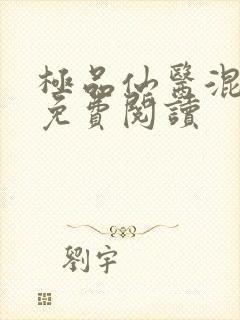 極品仙醫混
免費閱讀
劉宇